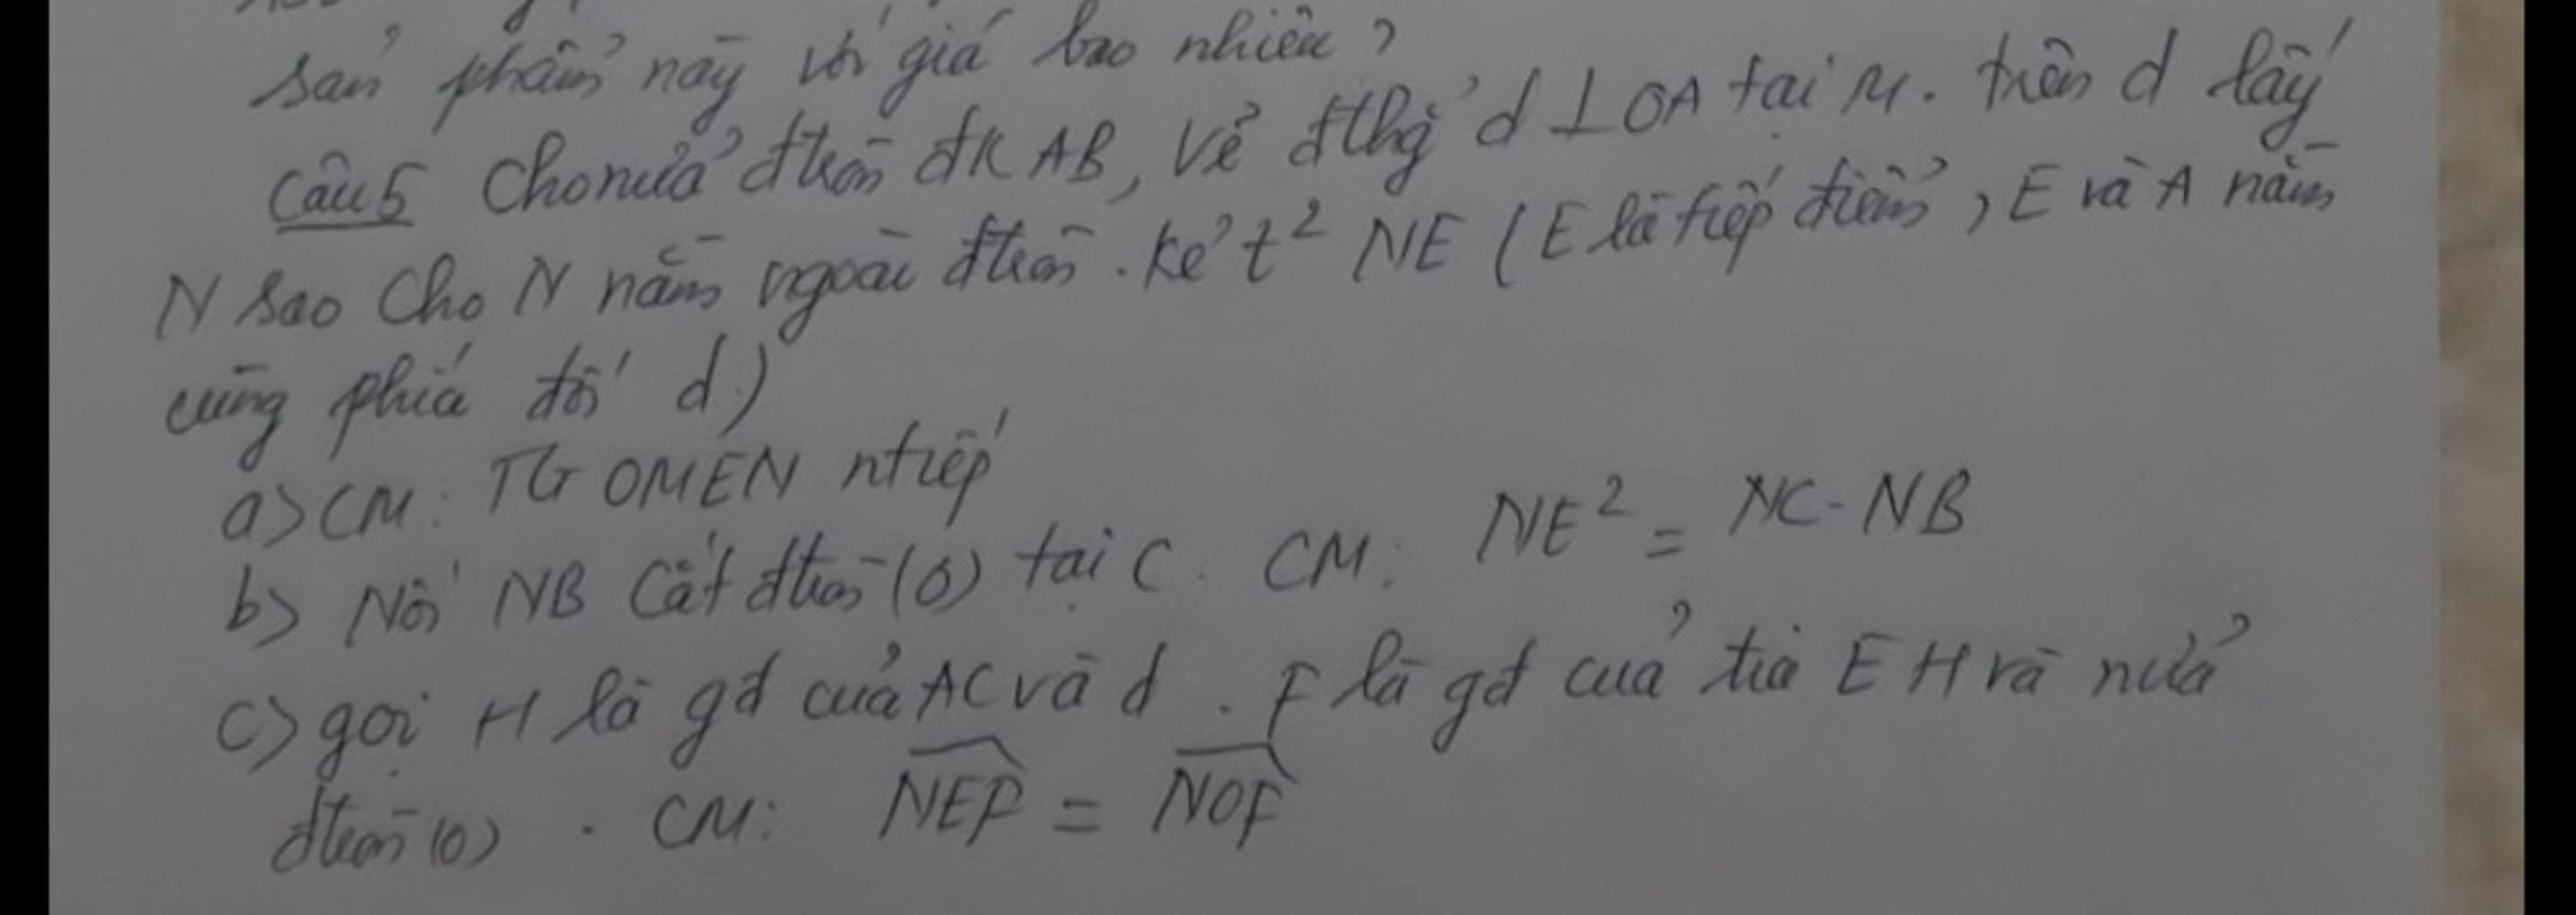 sản phẩm này với giá bao nhiêu?
Câu 5 Cho nửa đtròn đk AB, Vẽ đthg d ⊥ OA tại M. trên d lấy
N sao cho N nằm ngoài đtròn. Kẻ t² NE (E là tiếp điểm, E và A nằm
cùng phía đối d)
a> CM: TG OMEN ntiếp
b> Nối NB cắt đtròn (O) tại C. CM: NE² = NC.NB
c> gọi H là gđ của AC và d. F là gđ của tia EH và nửa
đtròn (O). CM: NEF = NOF